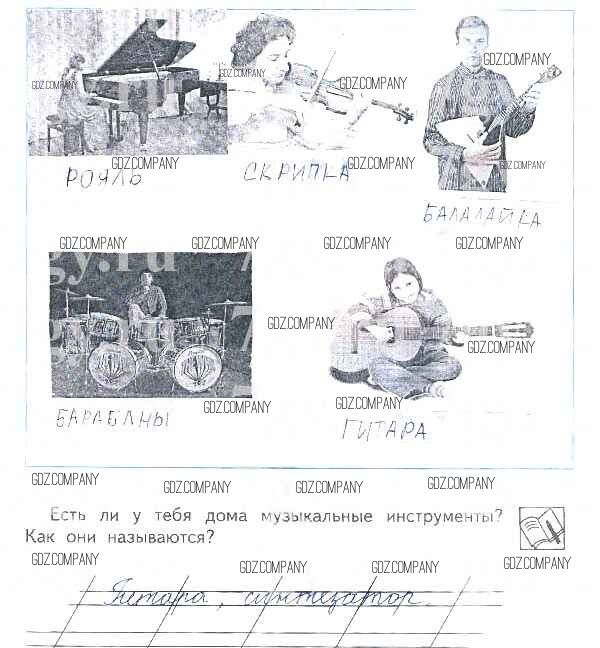 GDZ.COMPANY GDZ.COMPANY GDZ.COMPANY GDZ.COMPANY
GDZ.COMPANY GDZ.COMPANY GDZ.COMPANY
РОЯЛЬ СКРИПКА
БАЛАЛАЙКА
GDZ.COMPANY GDZ.COMPANY GDZ.COMPANY GDZ.COMPANY
gy.ru 7
GDZ.COMPANY GDZ.COMPANY
GDZ.COMPANY GDZ.COMPANY
БАРАБАНЫ ГИТАРА
GDZ.COMPANY GDZ.COMPANY GDZ.COMPANY GDZ.COMPANY
Есть ли у тебя дома музыкальные инструменты?
Как они называются?
GDZ.COMPANY GDZ.COMPANY GDZ.COMPANY GDZ.COMPANY
Гитара, синтезатор.